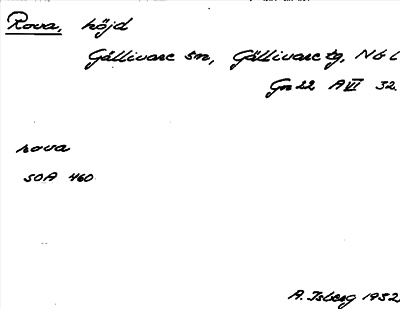 Rova, höjd
Gällivare sn, Gällivare tg, Nbl
Gn 22 A VI 32.
rova
SOA 460
A. Isberg 1932